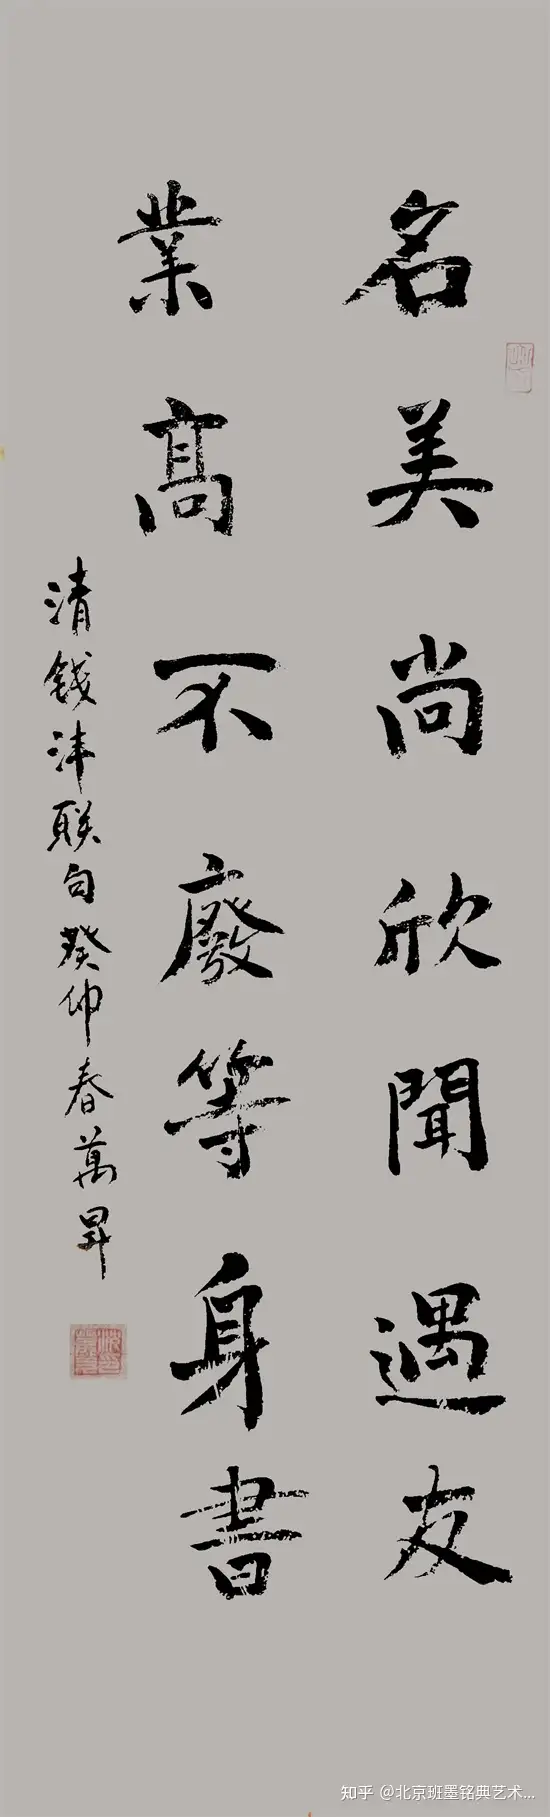 名美尚欣聞遇友
業高不廢等身書
清钱沣联句癸卯春萬昇
知乎 @北京班墨铭典艺术...